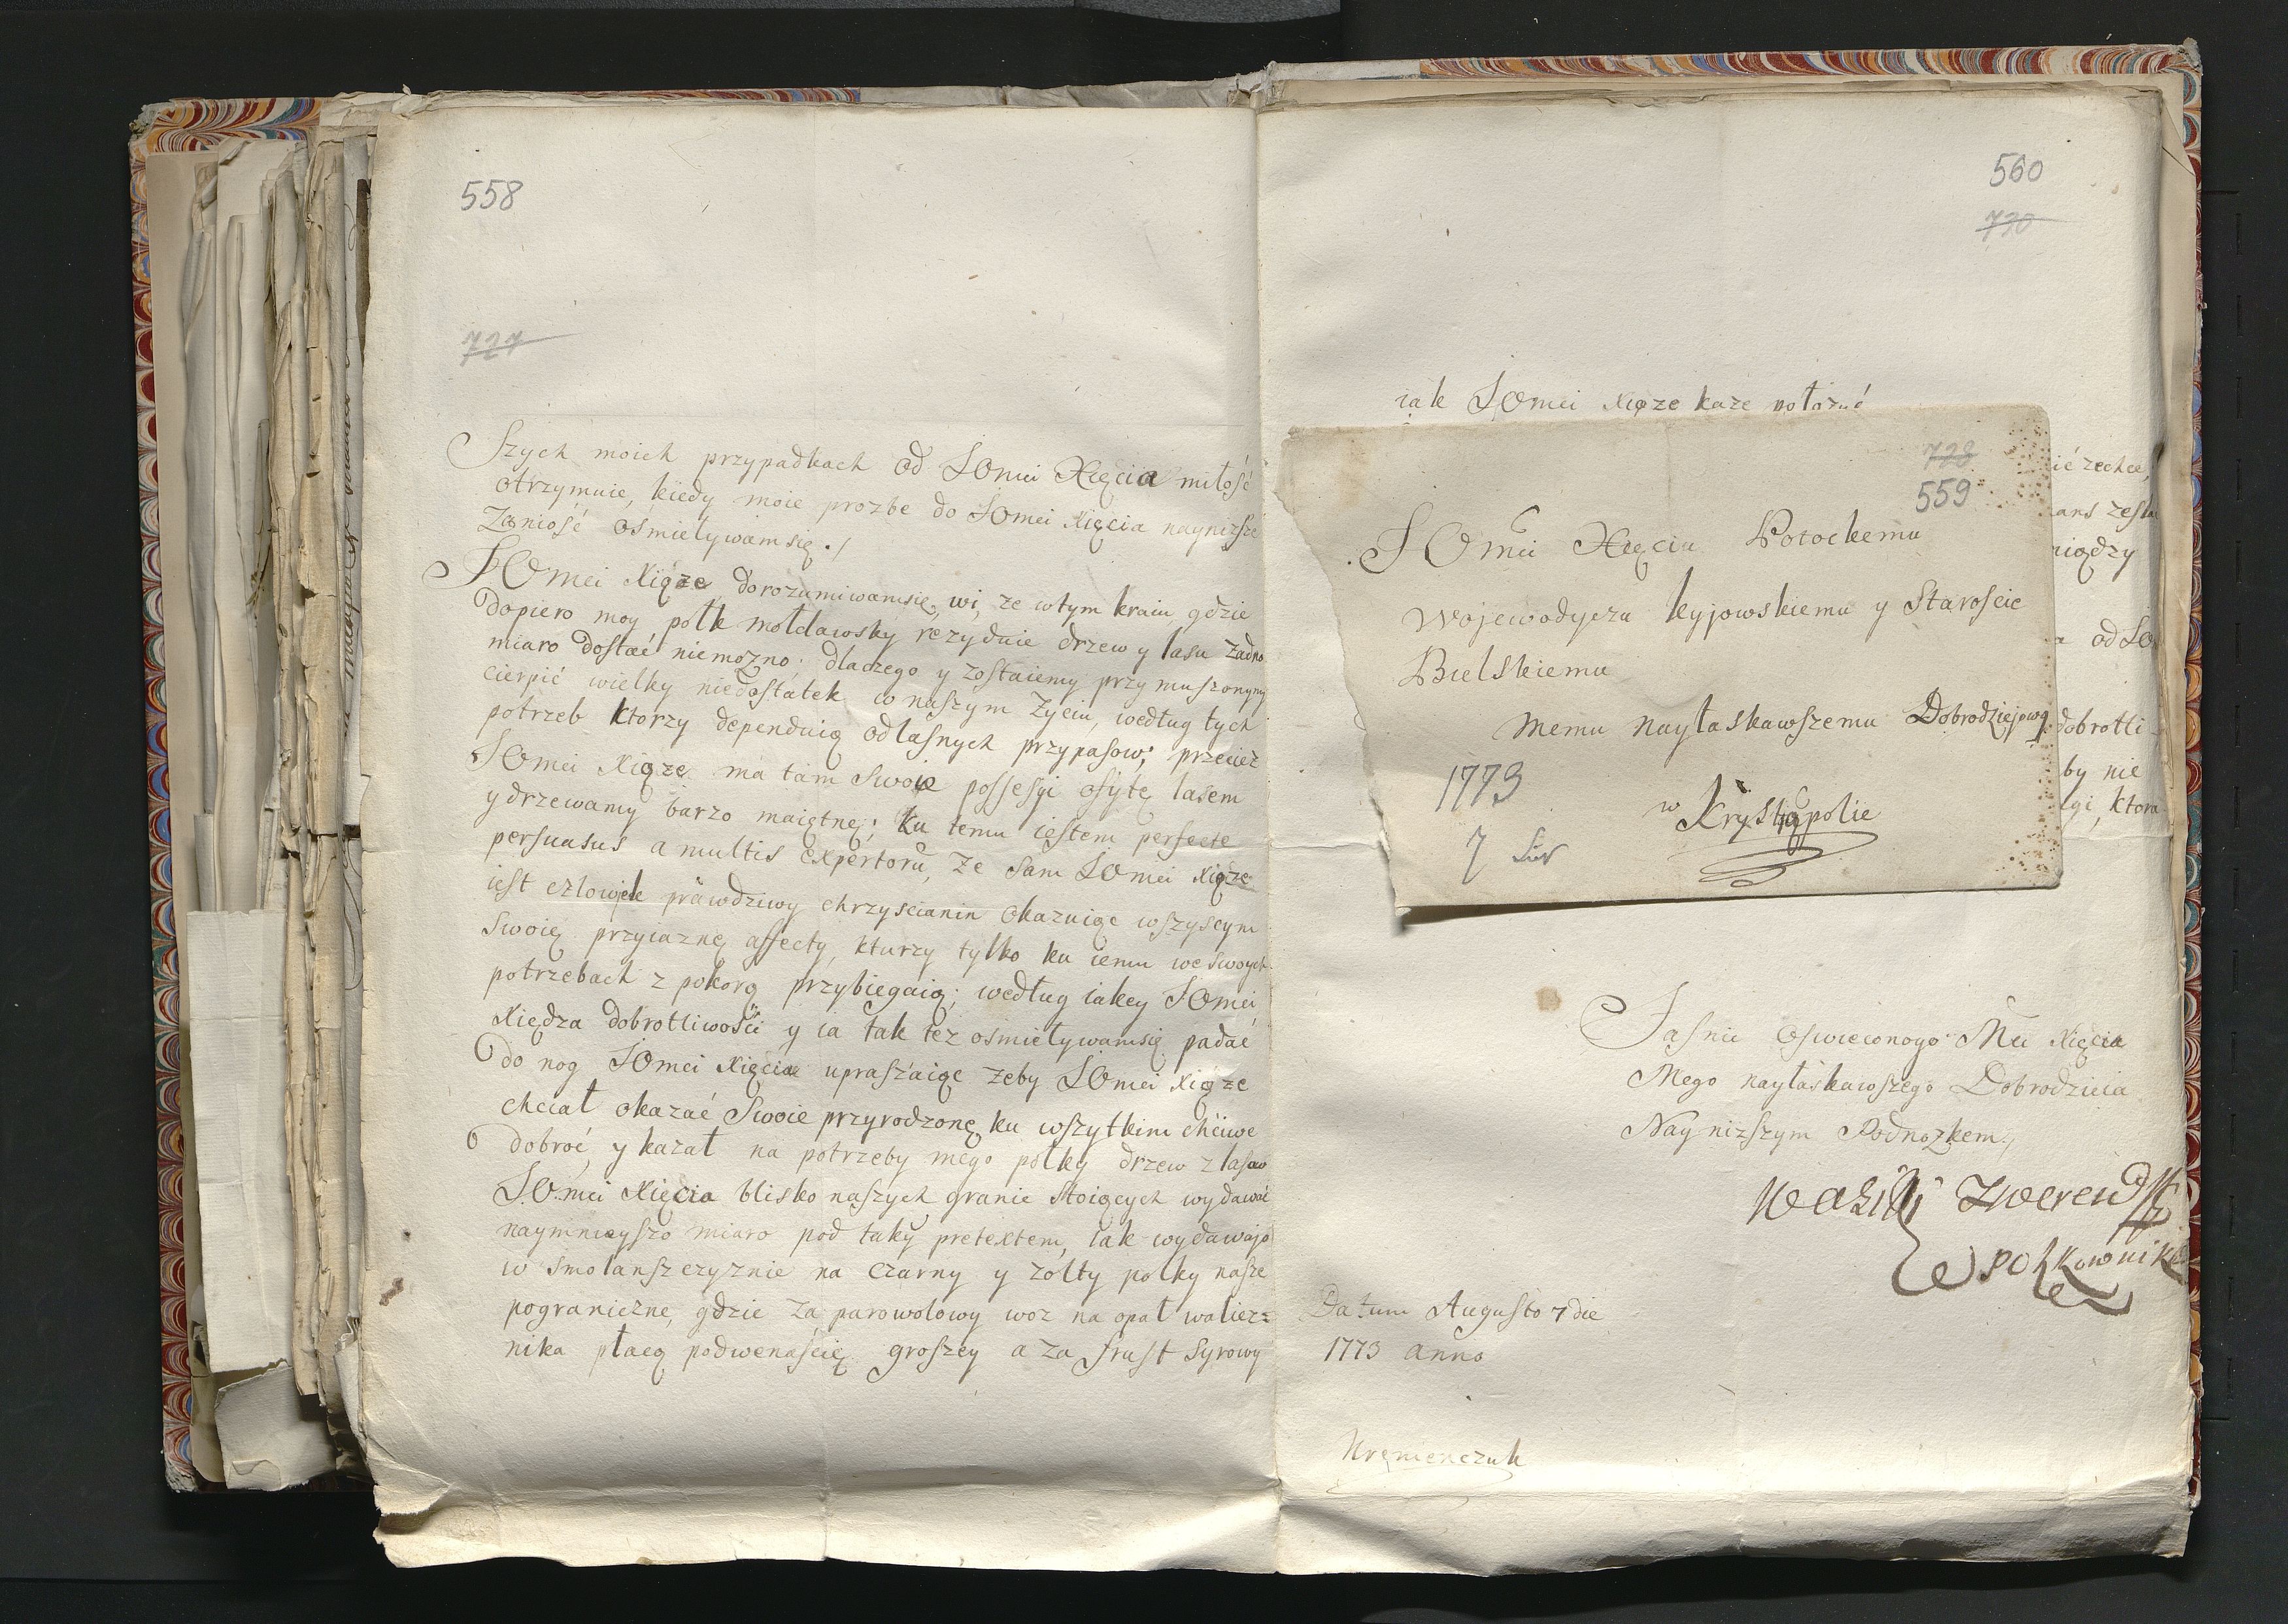 558
727
Szych moich przypadkach od JOmci Xięcia miłość
otrzymuie, kiedy moie prozbe do JOmci Xięcia nayniższe
Zaniość ośmieływamsię ./
JOmci Xiąże dorozumiwamsię, wi, że wtym kraiu, gdzie
dopiero moy połk mołdawsky rezyduie drzew y lasu żadno
miaro dostać niemożno; dlaczego y zostaiemy przymuszonymy
cierpić wielky niedostatek w naszym życiu, według tych
potrzeb ktorzy dependuią odlasnych przypasow; przecież
JOmci Xiąże ma tam Swoie possesyi osytę lasem
y drzewamy barzo maiętnę; ku temu iestem perfecte
persuasus a multis expertorũ, że sam JOmci Xiąże
iest człowjek prawdziwy chrzyscianin okazuiąc wszyscym
Swoię przyiaznę affecty, kturzy tylko ku iemu weswoych
potrzebach z pokorą przybiegaią; według iakey JOmci
Xiędza dobrotliwości y ia tak też osmieływamsię padać
do nog JOmci Xięcia upraszaiąc żeby JOmci Xiąże
chciał okazać Swoie przyrodzonę ku wszytkim chciwe
dobroć, y kazał na potrzeby mego połky drzew z lasow
JOmci Xięcia blisko naszych granic stoiących wydawać
naymnieyszo miaro pod taky pretextem, iak wydawaio
w Smolanszczyznie na czarny y żołty połky nasze
pograniczne, gdzie za parowołowy woz na opał walież=
nika płacą podwenaście groszey a za frust Syrowy
560
730
iak JOmci Xiąże każe położyć
ić zechce,
niędzy
od JO
dobrotli-
by nie
która
728
559
JOmci Xięciu Potockemu
Wojewodyczu kyjowskiemu y Staroscie
Bielskiemu
Memu nayłaskawszemu Dobrodziejowy
1773
7
w Krystypolie
Jasnie Oswieconogo Mci Xięcia
Mego nayłaskawszego Dobrodzieia
Nayniższym Podnożkem,
Połkownik
Datum Augusto 7 die
1773 anno
Kremenczuk